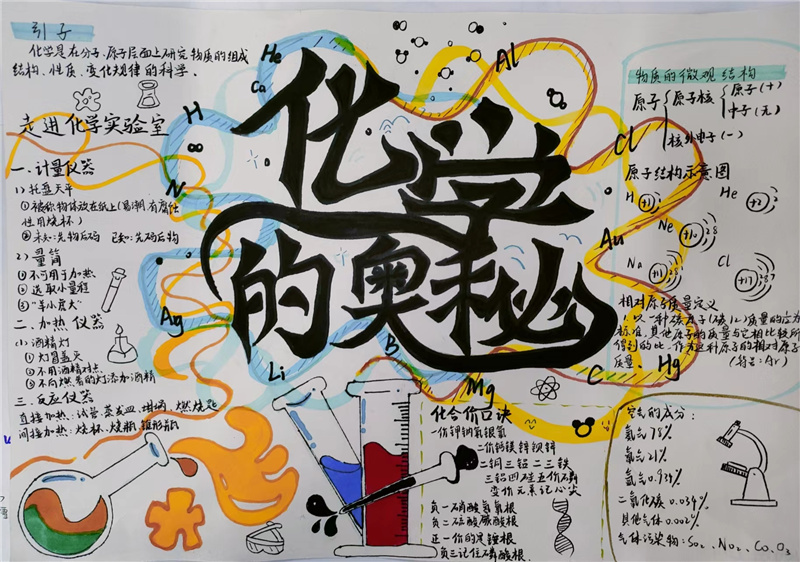 引子
化学是在分子、原子层面上研究物质的组成
结构、性质、变化规律的科学.
走进化学实验室
一.计量仪器
1)托盘天平
①被称物体放在纸上(易潮有腐蚀
性用烧杯)
②未知:先物后码 已知:先码后物
2)量筒
①不可用于加热
②选取小量程
③"羊小食大"
二.加热仪器
①灯冒盖灭
②不用酒精对点
③不向燃着的灯添加酒精
三.反应仪器
直接加热:试管.蒸发皿.坩埚.燃烧匙
间接加热:烧杯.烧瓶.锥形瓶
化学
的奥秘
He
Ca
H
N
Ag
Li
B
Mg
C
Hg
Au
Cl
Al
物质的微观结构
原子 原子核 原子(+)
中子(无)
核外电子(-)
原子结构示意图
H +1 1
He +2 2
Ne +10 2 8
Na +11
Cl +17
相对原子质量定义
标准,其他原子的质量与它相比较所
得到的比,作为这种原子的相对原子
质量. (符号:Ar)
化合价口诀
一价钾钠氯银氢
二价钙镁锌钡
二铜三铝二三铁
三铝四硅五价磷
变价元素记心头
负一硝酸氢氧根
负二硫酸碳酸根
正一价的是铵根
负三记住磷酸根.
空气的成分:
氮气78%
氧气21%
氩气0.934%
二氧化碳0.034%
其他气体0.002%
气体污染物:SO₂、NO₂、CO、O₃